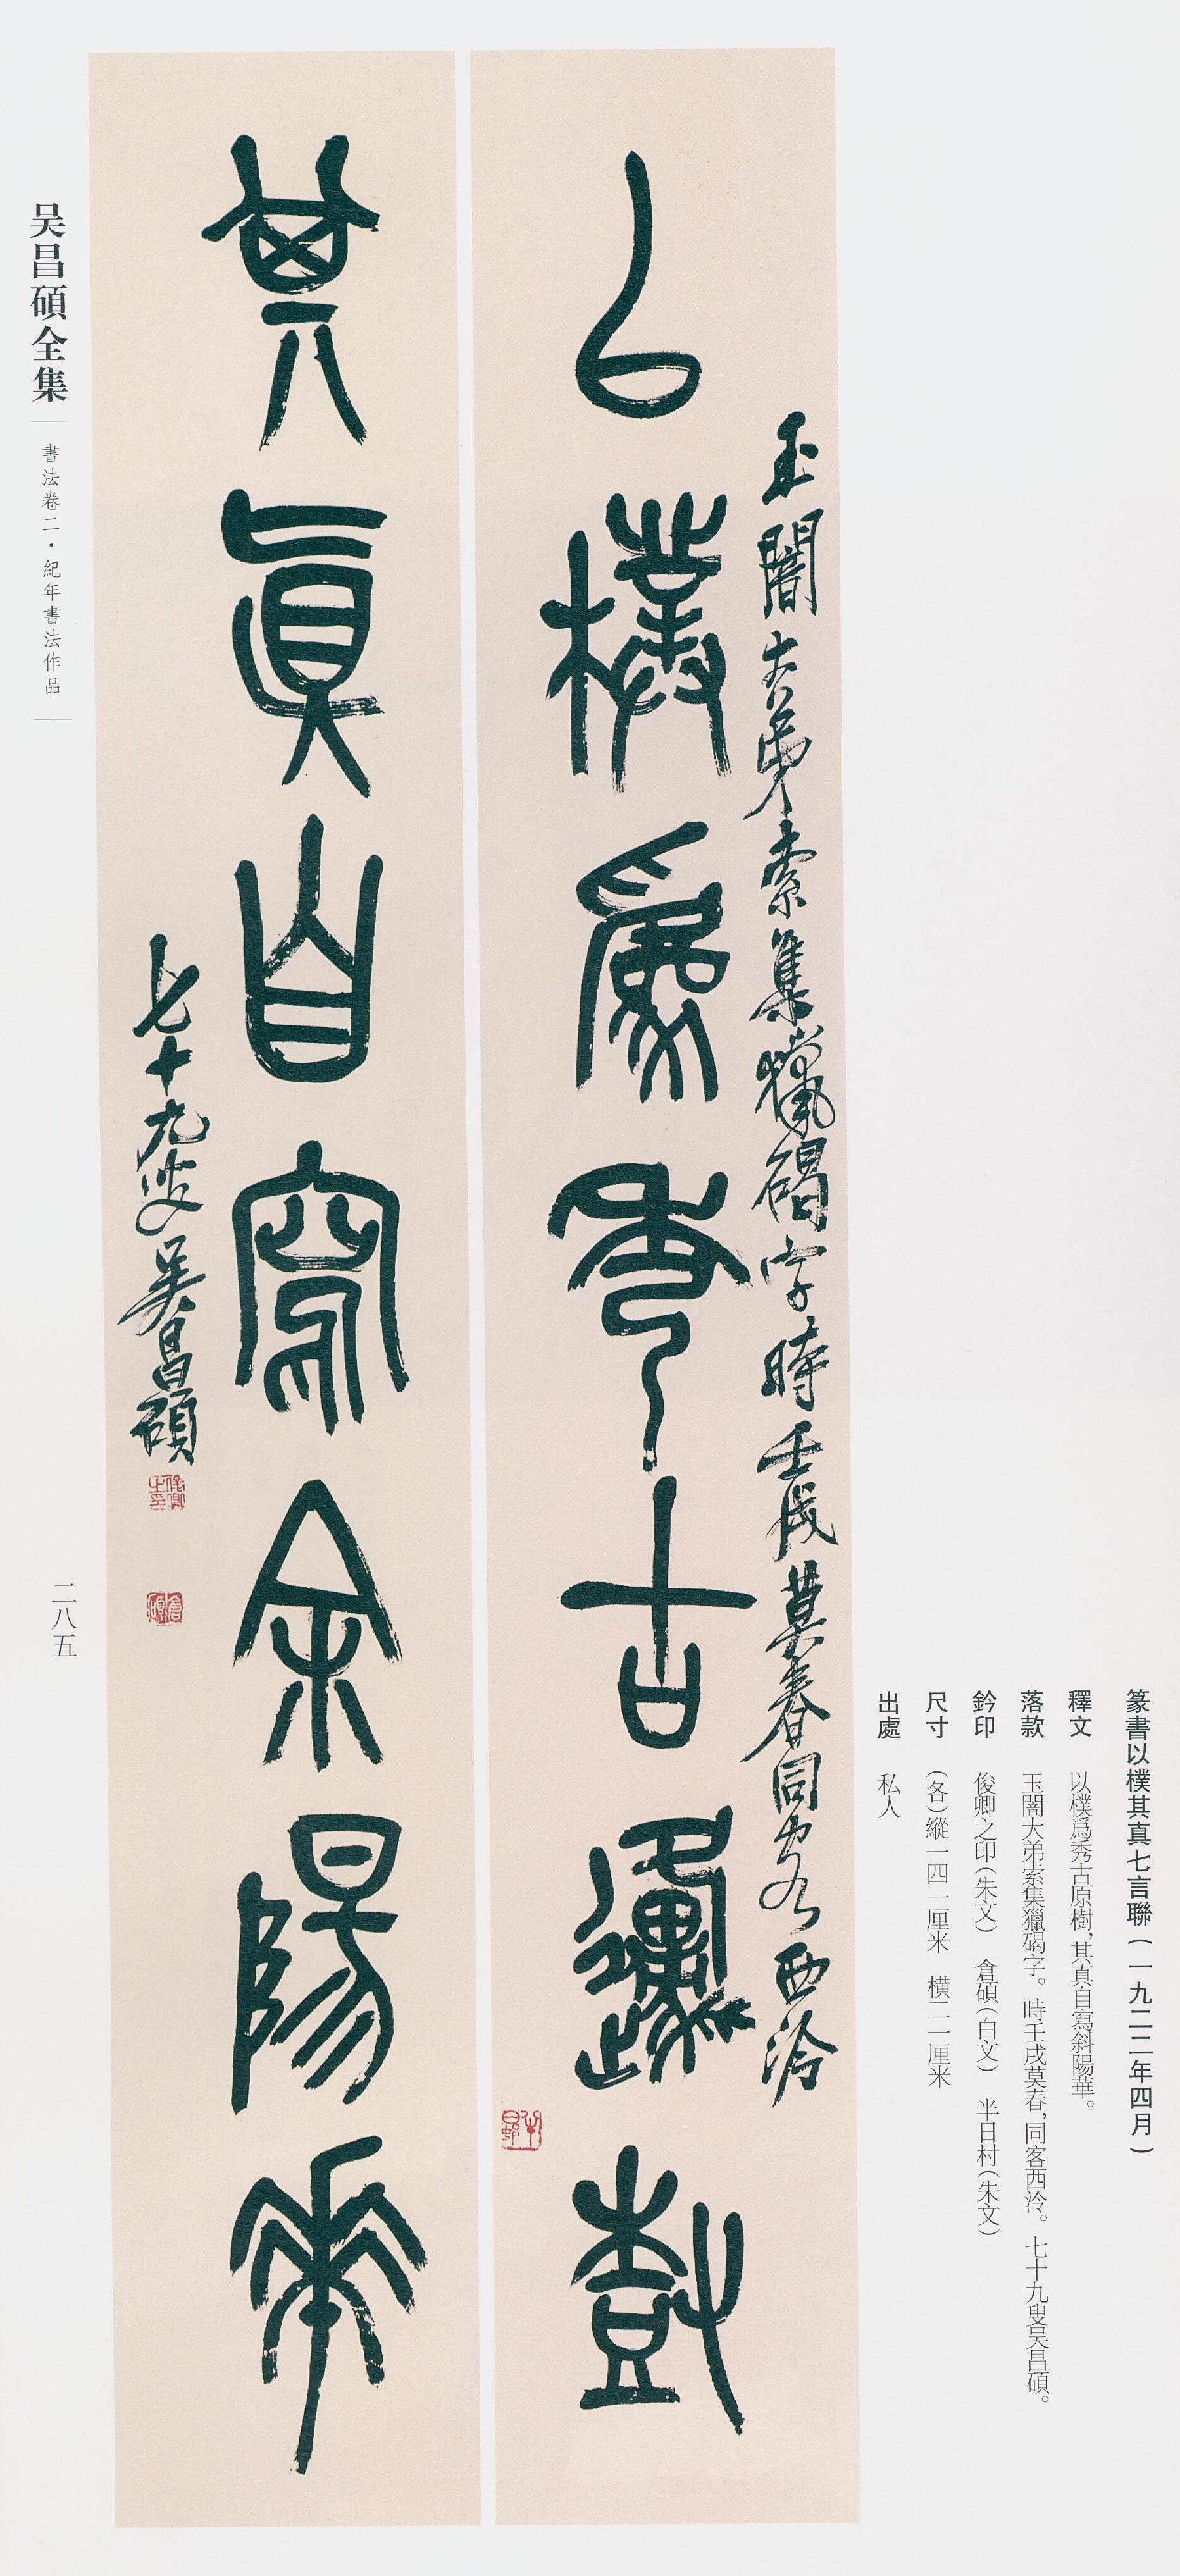 篆書以樸其真七言聯(一九二二年四月)
釋文 以樸爲秀古原樹,其真自寫斜陽華。
落款 玉闇大弟索集獵碣字。時壬戌莫春,同客西泠。七十九叟吴昌碩。
鈐印 俊卿之印(朱文) 倉碩(白文) 半日村(朱文)
尺寸 (各)縱一四一厘米 横二一厘米
出處 私人
玉闇大弟索集獵碣字時壬戌莫春同客西泠
以樸爲秀古原樹
半日邨
其真自寫余陽華
七十九叟吴昌碩
俊卿之印
倉碩
吴昌碩全集
書法卷二·紀年書法作品
二八五